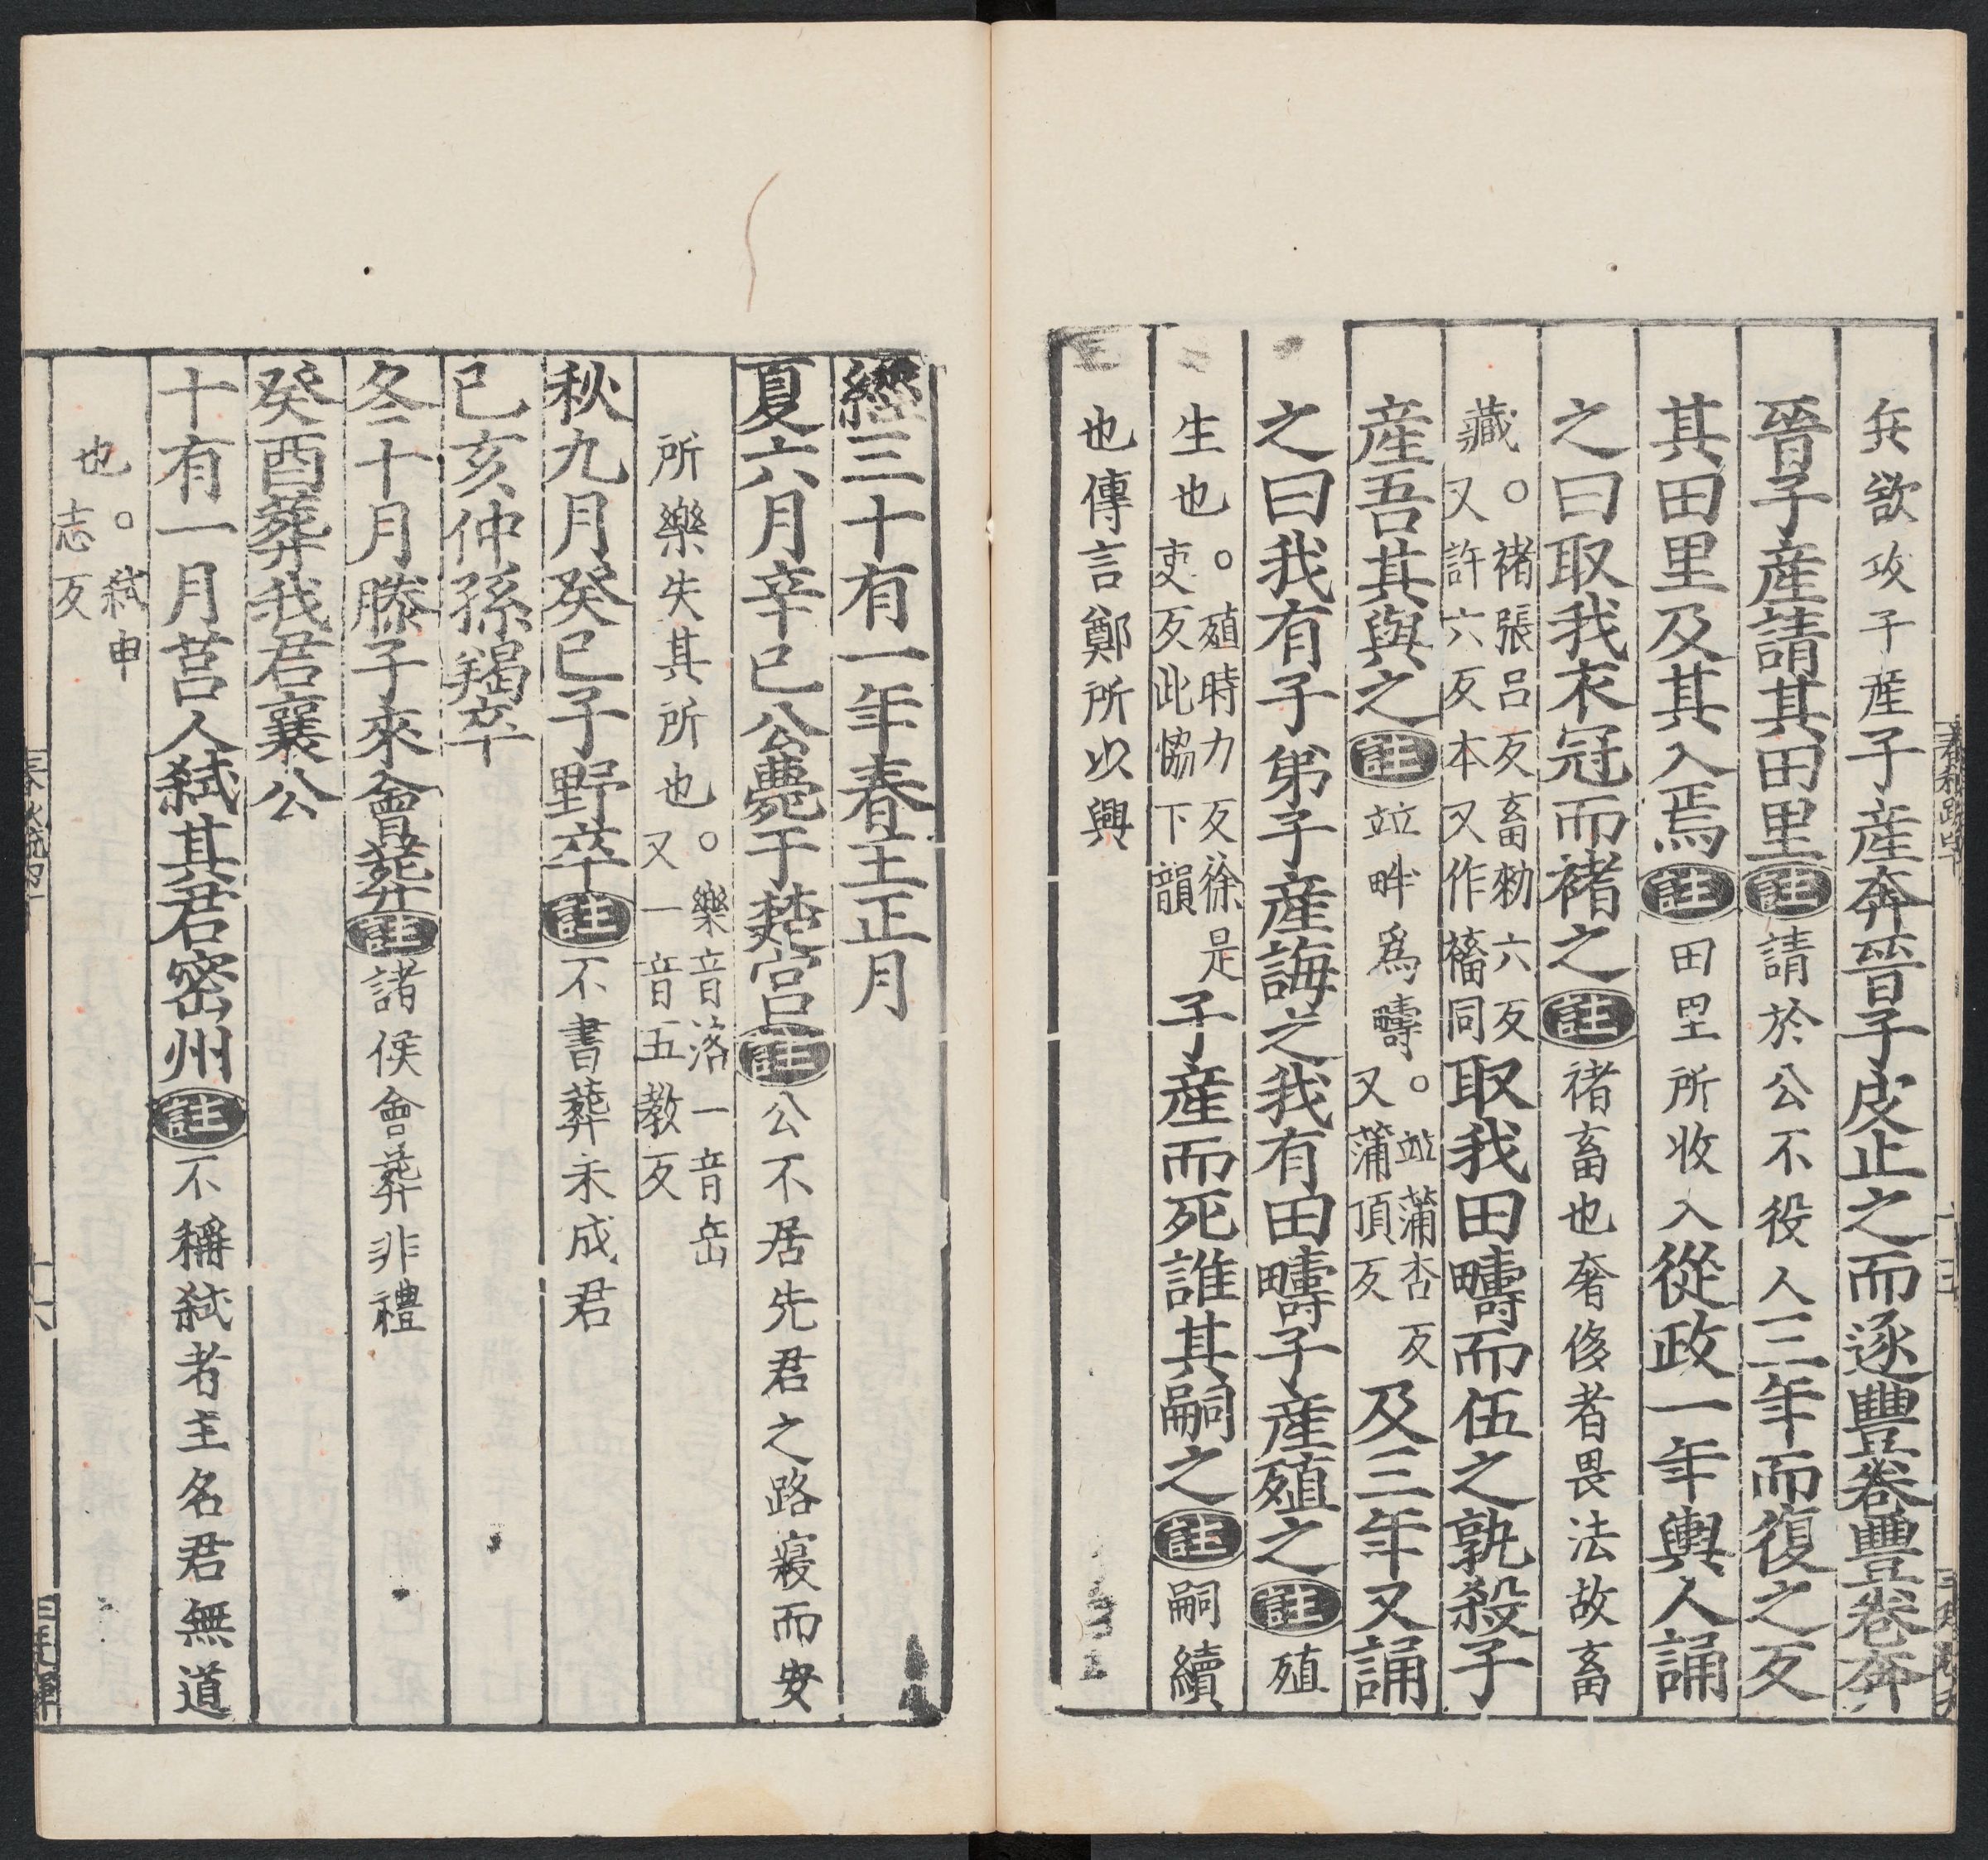 兵欲攻子產子產奔晉子皮止之而逐豐卷豐卷奔
晉子產請其田里註請於公不役人三年而復之反
其田里及其入焉註田里所收入從政一年輿人誦
之曰取我衣冠而褚之註褚畜也奢侈者畏法故畜
藏○褚張呂反畜勑六反又許六反本又作蓄同取我田疇而伍之孰殺子
產吾其與之註竝畔爲疇○竝蒲杏反又蒲頂反及三年又誦
之曰我有子弟子產誨之我有田疇子產殖之註殖
生也○殖時力反徐是吏反此協下韻子產而死誰其嗣之註嗣續
也傳言鄭所以興
經三十有一年春王正月
夏六月辛巳公薨于楚宮註公不居先君之路寢而安
所樂失其所也○樂音洛一音岳又一音五教反
秋九月癸巳子野卒註不書葬未成君
己亥仲孫羯卒
冬十月滕子來會葬註諸侯會葬非禮
癸酉葬我君襄公
十有一月莒人弒其君密州註不稱弒者主名君無道
也○弒申志反